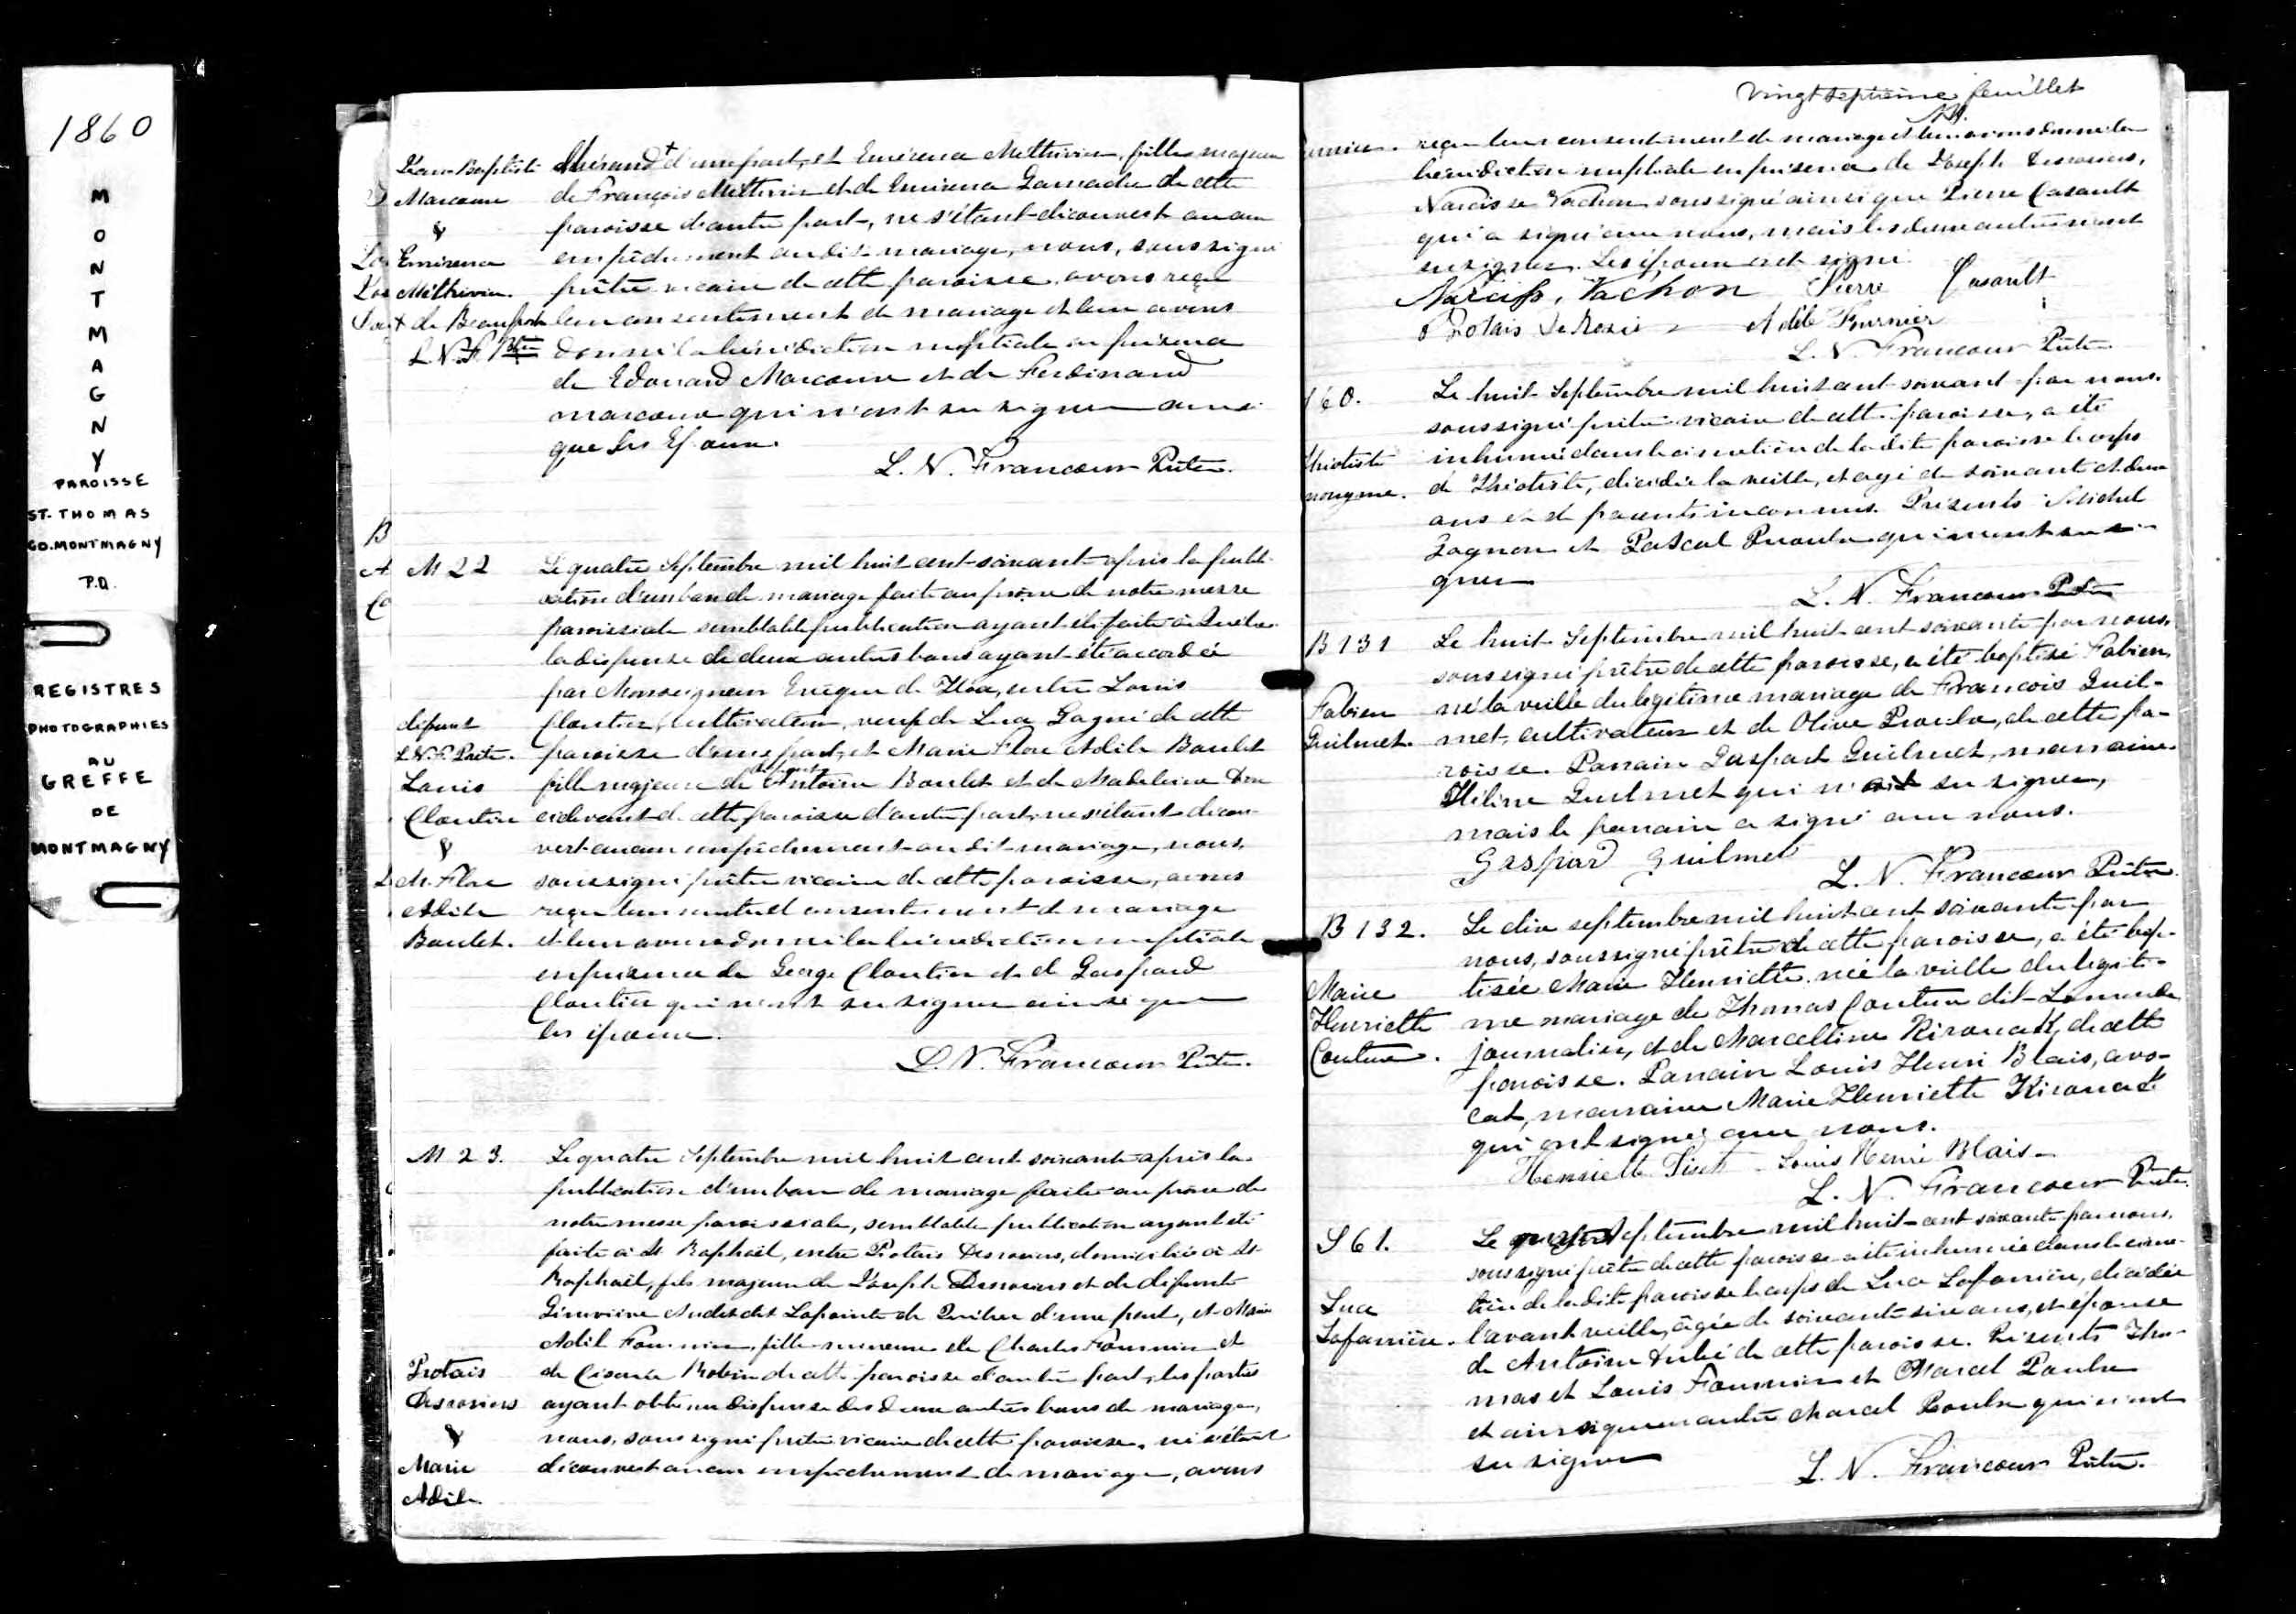 1860
MONTMAGNY
PAROISSE
ST. THOMAS
CO. MONTMAGNY
P.Q.
REGISTRES
PHOTOGRAPHIES
AU
GREFFE
DE
MONTMAGNY
Jean-Baptiste
Marcoux
&
Emérence
Méthivier.
+ de Beauport
L. N. F. Ptre
d'une part, et Emérence Methivier, fille majeure
de François Methivier et de Emérence Gamache de cette
paroisse d'autre part, ne s'étant découvert aucun
empêchement au dit mariage, nous, soussigné
prêtre vicaire de cette paroisse, avons reçu
leur consentement de mariage et leur avons
donné la bénédiction nuptiale en présence
de Edouard Marcoux et de Ferdinand
Marcoux qui n'ont su signer ainsi
que les Epoux.
L. N. Francoeur Ptre.
B
A
M 22
défunt
L. N. F. Prtre.
Louis
Cloutier
&
M. Flore
Adile
Boulet.
Le quatre Septembre mil huit cent soixante après la publi-
cation d'un ban de mariage faite au prône de notre messe
paroissiale semblable publication ayant été faite à
la dispense de deux autres bans ayant été accordée
par Monseigneur Evêque de Tloa, entre Louis
Cloutier, cultivateur, veuf de Luce Gagné de cette
paroisse d'une part, et Marie Flore Adile Boulet
fille majeure de défunt Antoine Boulet et de Madeleine
ci-devant de cette paroisse d'autre part, ne s'étant décou-
vert aucun empêchement au dit mariage, nous,
soussigné prêtre vicaire de cette paroisse, avons
reçu leur mutuel consentement de mariage
et leur avons donné la bénédiction nuptiale
en présence de George Cloutier et de Gaspard
Cloutier qui n'ont su signer ainsi que
les époux.
L. N. Francoeur Ptre.
M 23.
Protais
Desrosiers
&
Marie
Adile
Le quatre Septembre mil huit cent soixante après la
publication d'un ban de mariage faite au prône de
notre messe paroissiale, semblable publication ayant été
faite à St Raphaël, entre Protais Desrosiers, domicilié à St
Raphaël, fils majeur de Joseph Desrosiers et de défunte
Geneviève Audet dit Lapointe de Québec d'une part, et Marie
Adile Fournier, fille mineure de Charles Fournier et
de Césarée Robin de cette paroisse d'autre part, les parties
ayant obtenu dispense des deux autres bans de mariage,
nous, soussigné prêtre vicaire de cette paroisse, ne s'étant
découvert aucun empêchement de mariage, avons
vingt septième feuillet
reçu leur consentement de mariage et leur avons donné la
bénédiction nuptiale en présence de Joseph Desrosiers,
Narcisse Vachon soussigné ainsi que Pierre Casault
qui a signé avec nous, mais les deux autres n'ont
su signer. Les époux ont signé
Narciss, Vachon Pierre Casault
Protais DeRosié Adèle Furnier
L. N. Francoeur Prtre.
S 60.
Théotiste
anonyme.
Le huit Septembre mil huit cent soixante par nous.
soussigné prêtre vicaire de cette paroisse, a été
inhumé dans le cimetière de la dite paroisse le corps
de Théotiste, décédée la veille, et agé de soixante et deux
ans et de parents inconnus. Présents Michel
Gagnon et Pascal Proulx qui n'ont su si-
gner
L. N. Francoeur Ptre
B 131
Fabien
Guilmet.
Le huit Septembre mil huit cent soixante par nous,
soussigné prêtre de cette paroisse, a été baptisé Fabien,
né la veille du legitime mariage de Francois Guil-
met, cultivateur et de Olive Proulx, de cette pa-
roisse. Parrain Gaspard Guilmet, marraine
Héline Guilmet qui n'ont su signer,
mais le parrain a signé avec nous.
Gaspard Guilmet
L. N. Francoeur Prtre
B 132.
Marie
Henriette
Couture.
Le dix septembre mil huit cent soixante par
nous, soussigné prêtre de cette paroisse, a été bap-
tisée Marie Henriette née la veille du legiti-
me mariage de Thomas Couture dit Lamonde
journalier, et de Marcelline Kirouack, de cette
paroisse. Parrain Louis Henri Blais, avo-
cat, marraine Marie Henriette Kirouack
qui ont signé avec nous.
Henriette Louis Henri Blais
L. N. Francoeur Prtre.
S 61.
Luce
Laferrière.
Le Septembre mil huit cent soixante par nous,
soussigné prêtre de cette paroisse a été inhumée dans le cime-
tière de la dite paroisse le corps de Luce Laferrière, décédée
l'avant veille, âgée de soixante six ans, et épouse
de Antoine Dubé de cette paroisse. Présents Tho-
mas et Louis Fournier et Marcel Proulx
et ainsi que un autre Marcel Proulx qui n'ont
su signer
L. N. Francoeur Prtre.